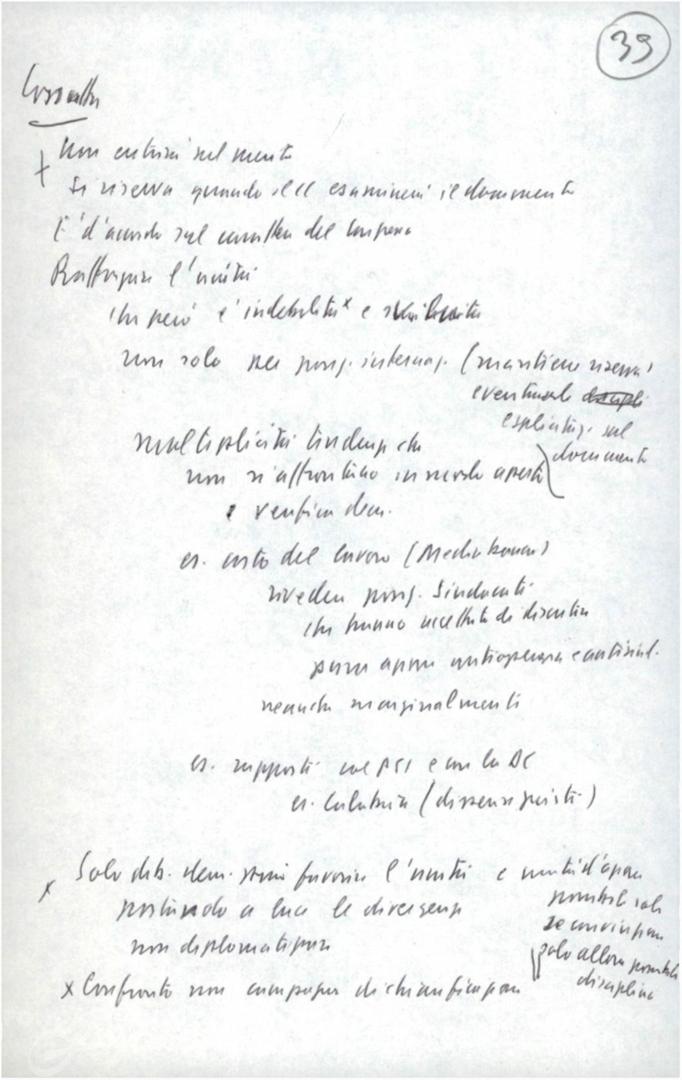 39
Cossutta
+ Non entrerà nel merito
Si riserva quando il CC esaminerà il documento
E' d'accordo sul carattere del Congresso
Rafforzare l'unità
che però è indebolita x e
non solo per posiz. internaz. (mantiene riserva)
eventuale
esplicitaz. sul
documento
molteplicità tendenze che
non si affrontino in modo aperto
e verifica dem.
es. costo del lavoro (Mediobanca)
rivedere posiz. Sindacati
che hanno accettato di discutere
senza aprire antioperaia e antisind.
neanche marginalmente
es. rapporti col PSI e con la DC
es. Calabria (dissensi giusti)
x Solo dib. dem. può favorire l'unità e unità d'azione
portando a luce le divergenze
non diplomatizzare
possibili solo
se convinzione
solo allora possibile
disciplina
x Confronto non campagna di chiarificazione